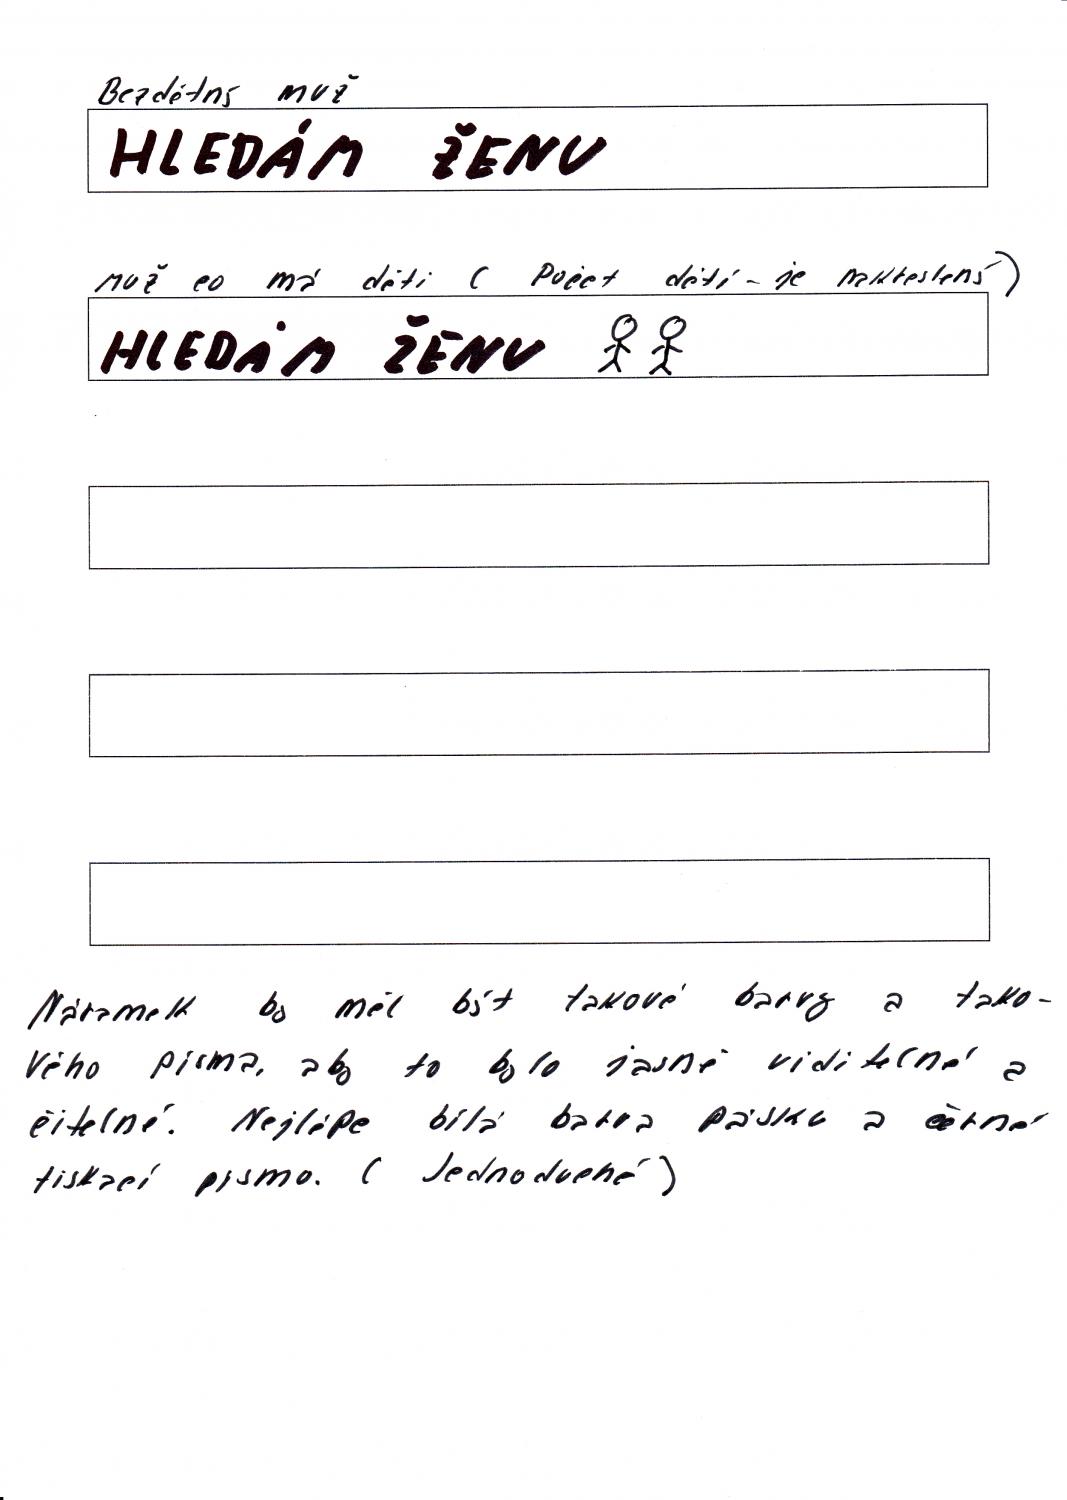 Bezdětný muž
HLEDÁM ŽENU
muž co má děti ( Počet dětí - je nakreslený )
HLEDÁM ŽENU
Náramek by měl být takové barvy a tako-
vého písma, aby to bylo jasně viditelné a
čitelné. Nejlépe bílá barva pásku a černé
tiskací písmo. ( Jednoduché )